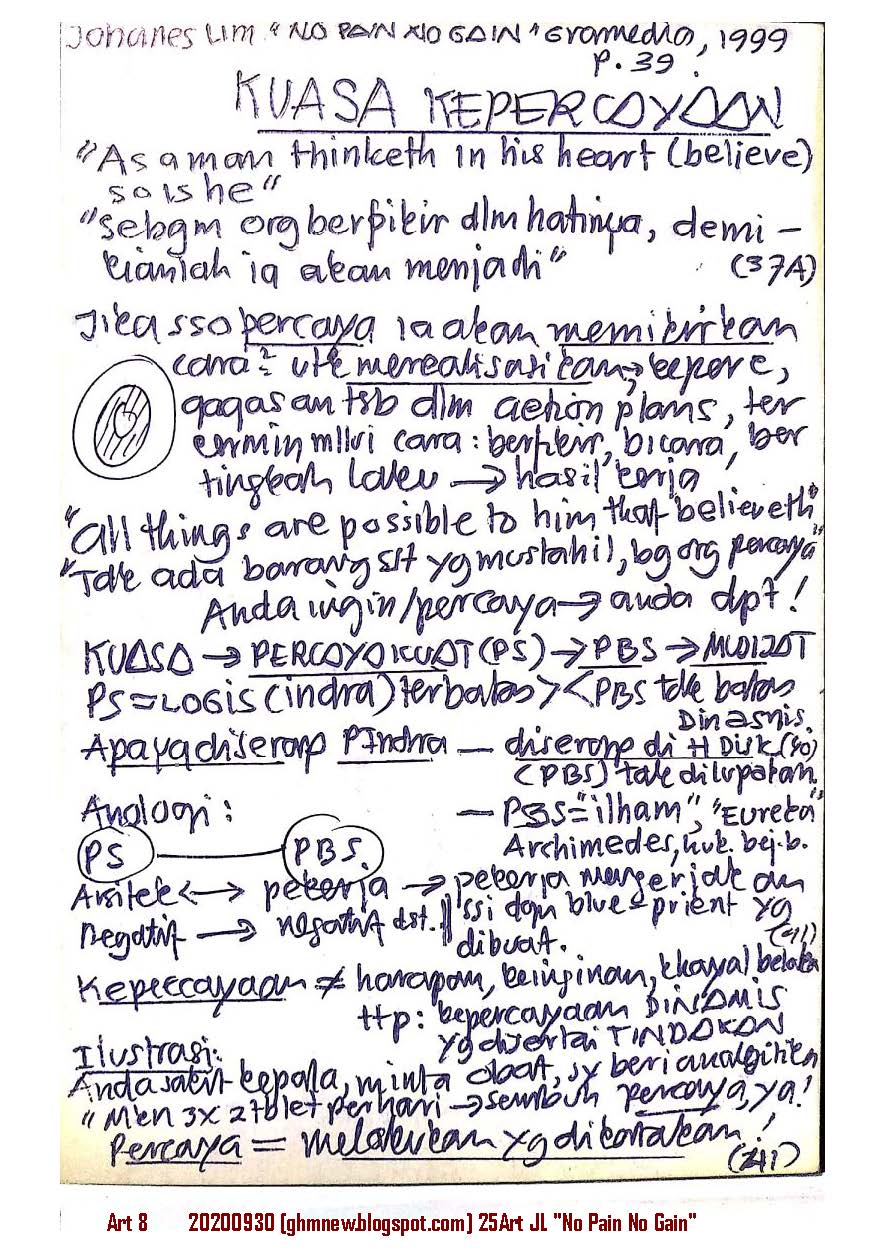 Johanes Lim "NO PAIN NO GAIN" Gramedia, 1999
p. 39.
KUASA KEPERCAYAAN
"As a man thinketh in his heart (believe)
so is he"
"sebgm org berpikir dlm hatinya, demi –
kianlah ia akan menjadi" (37A)
Jika sso percaya ia akan memikirkan
cara² utk merealisasikan → keperc,
gagasan tsb dlm action plans, ter
cermin mllui cara : berpikir, bicara, ber
tingkah laku → hasil kerja
"All things are possible to him that believeth"
"Tdk ada barang sst yg mustahil, bg org percaya"
Anda ingin/percaya → anda dpt !
KUASA → PERCAYA KUAT (PS) → PBS → MUJIZAT
PS = LOGIS (indra) terbatas >< PBS tdk batas
Apa yg diserap PIndra — diserap di H Disk (40)
(PBS) tak dilupakan
Analogi : — PBS = "ilham", "Eureka"
Archimedes, huk. bej. b.
PS — PBS.
Arsitek <—> pekerja → pekerja mengerjakan
Negatif → negatif dst. || ssi dgn blue-prient yg
dibuat. (41)
Kepercayaan ≠ harapan, keinginan, khayal belaka
ttp : kepercayaan DINAMIS
yg disertai TINDAKAN
Ilustrasi:
Anda sakit kepala, minta obat, sy beri analgitik
"M'en 3x 2 tblet perhari → sembuh percaya, ya!
Percaya = melakukan yg dikatakan !
(41)
Art 8 20200930 (ghmnew.blogspot.com) 25Art JL "No Pain No Gain"